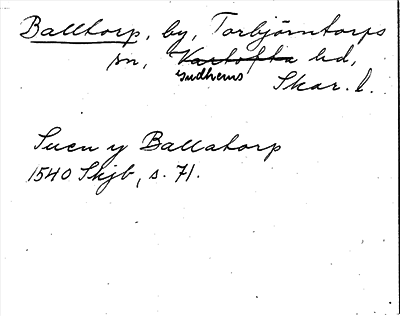 Balltorp, by, Torbjörntorps
sn, Vartofta hd,
Gudhems
Skar. l.
Suen y Ballatorp
1540 Skjb, s. 71.